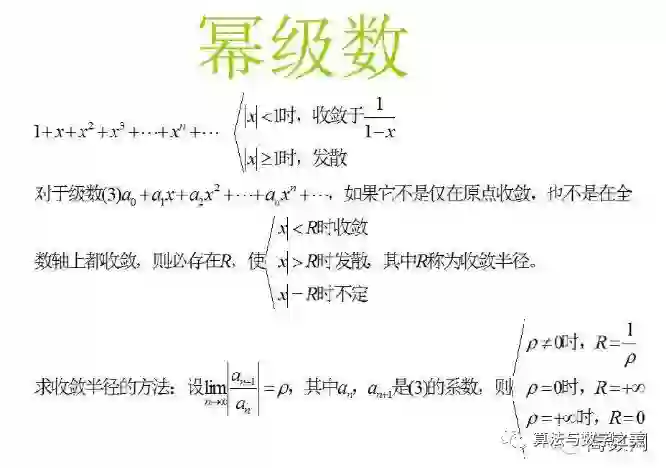 幂级数
1+x+x²+x³+⋯+xⁿ+⋯ { |x|<1时，收敛于 1/(1-x)
|x|≥1时，发散
对于级数(3)a₀+a₁x+a₂x²+⋯+aₙxⁿ+⋯，如果它不是仅在原点收敛，也不是在全
数轴上都收敛，则必存在R，使 { |x|<R时收敛
|x|>R时发散，其中R称为收敛半径。
|x|=R时不定
求收敛半径的方法：设lim_{n→∞}|aₙ₊₁/aₙ|=ρ，其中aₙ，aₙ₊₁是(3)的系数，则 { ρ≠0时，R=1/ρ
ρ=0时，R=+∞
ρ=+∞时，R=0
算法与数学之美